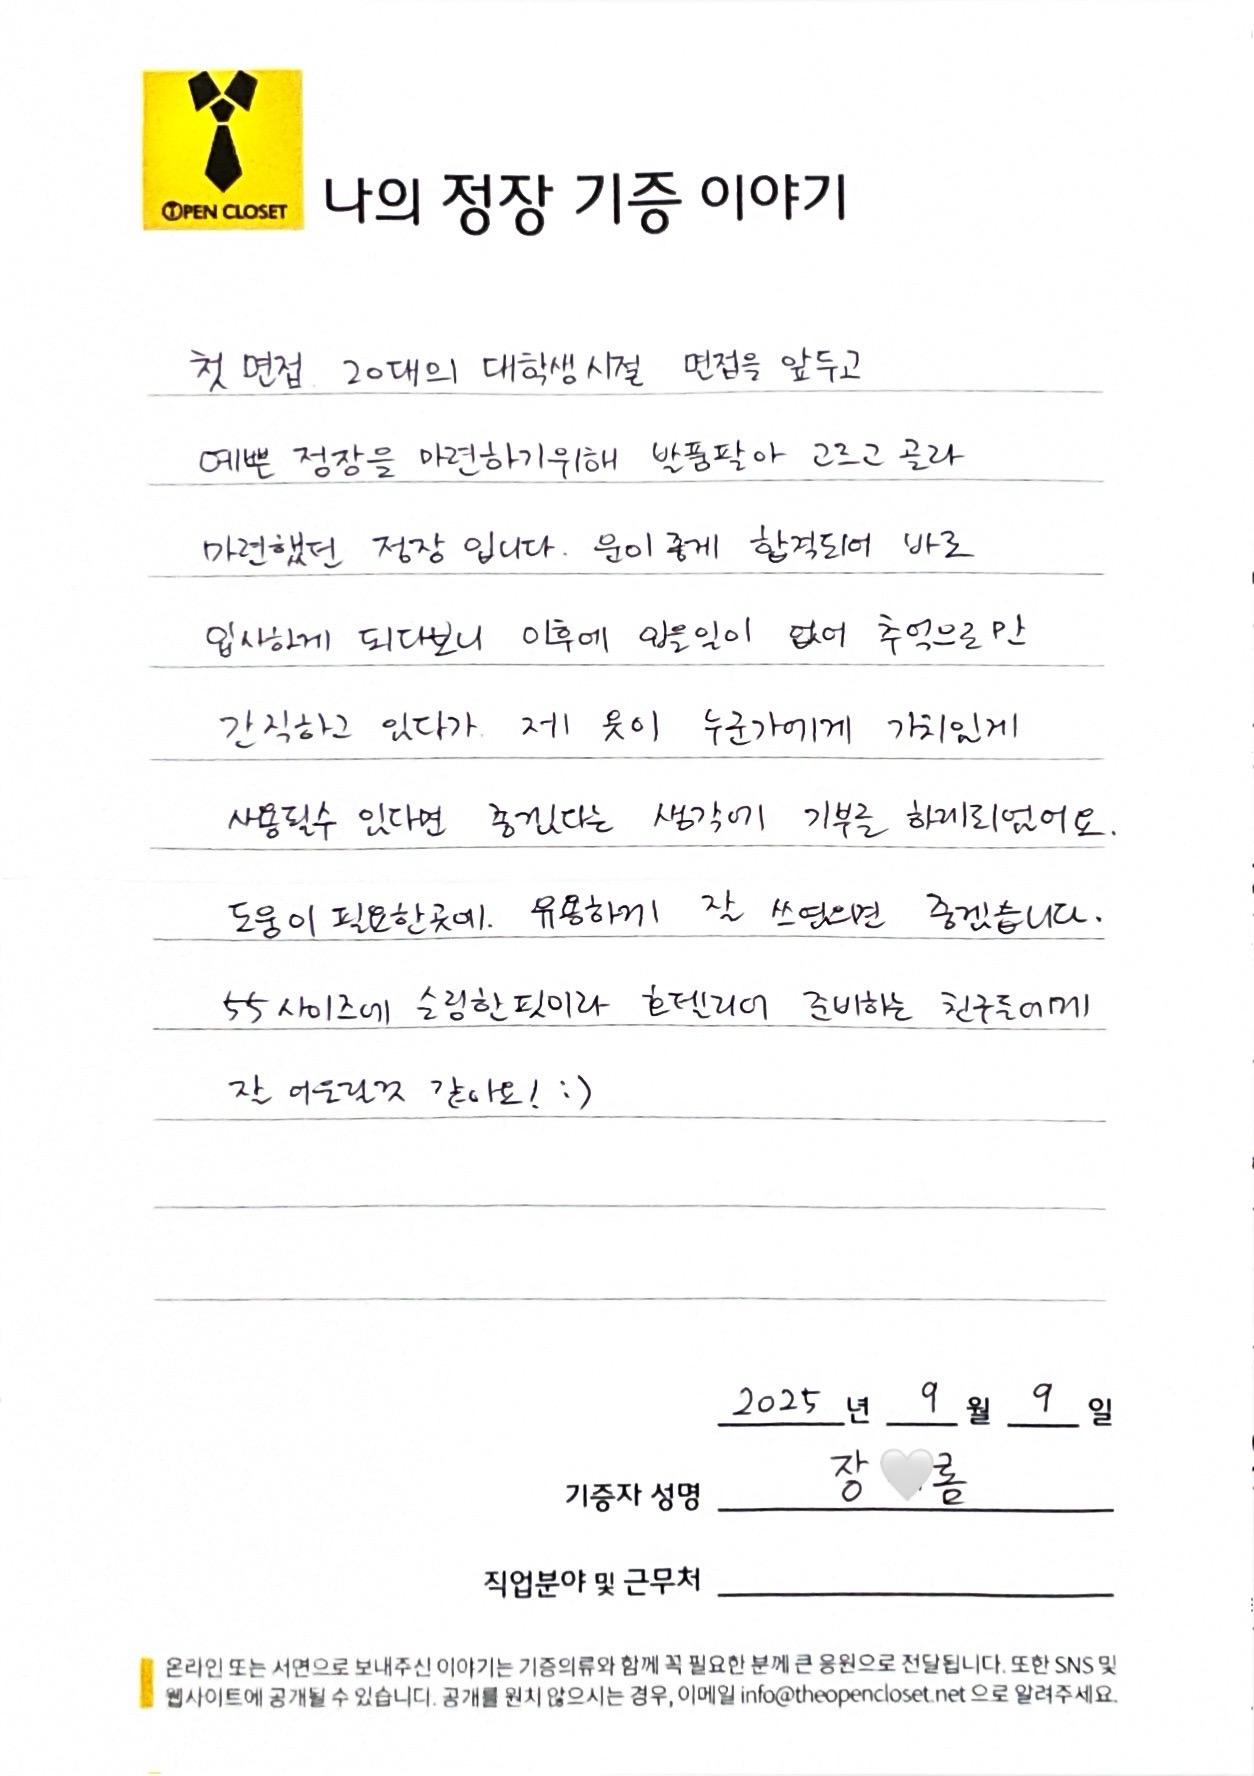 OPEN CLOSET
나의 정장 기증 이야기
첫 면접. 20대의 대학생시절 면접을 앞두고
예쁜 정장을 마련하기위해 발품팔아 고르고 골라
마련했던 정장 입니다. 운이좋게 합격되어 바로
입사하게 되다보니 이후에 입을일이 없어 추억으로만
간직하고 있다가. 제 옷이 누군가에게 가치있게
사용될수 있다면 좋겠다는 생각에 기부를 하게되었어요.
도움이 필요한곳에. 유용하게 잘 쓰였으면 좋겠습니다.
55사이즈에 슬림한핏이라 호텔리어 준비하는 친구들에게
잘 어울릴것 같아요! :)
2025 년 9 월 9 일
기증자 성명 장 롬
직업분야 및 근무처
온라인 또는 서면으로 보내주신 이야기는 기증의류와 함께 꼭 필요한 분께 큰 응원으로 전달됩니다. 또한 SNS 및
웹사이트에 공개될 수 있습니다. 공개를 원치 않으시는 경우, 이메일 info@theopencloset.net 으로 알려주세요.